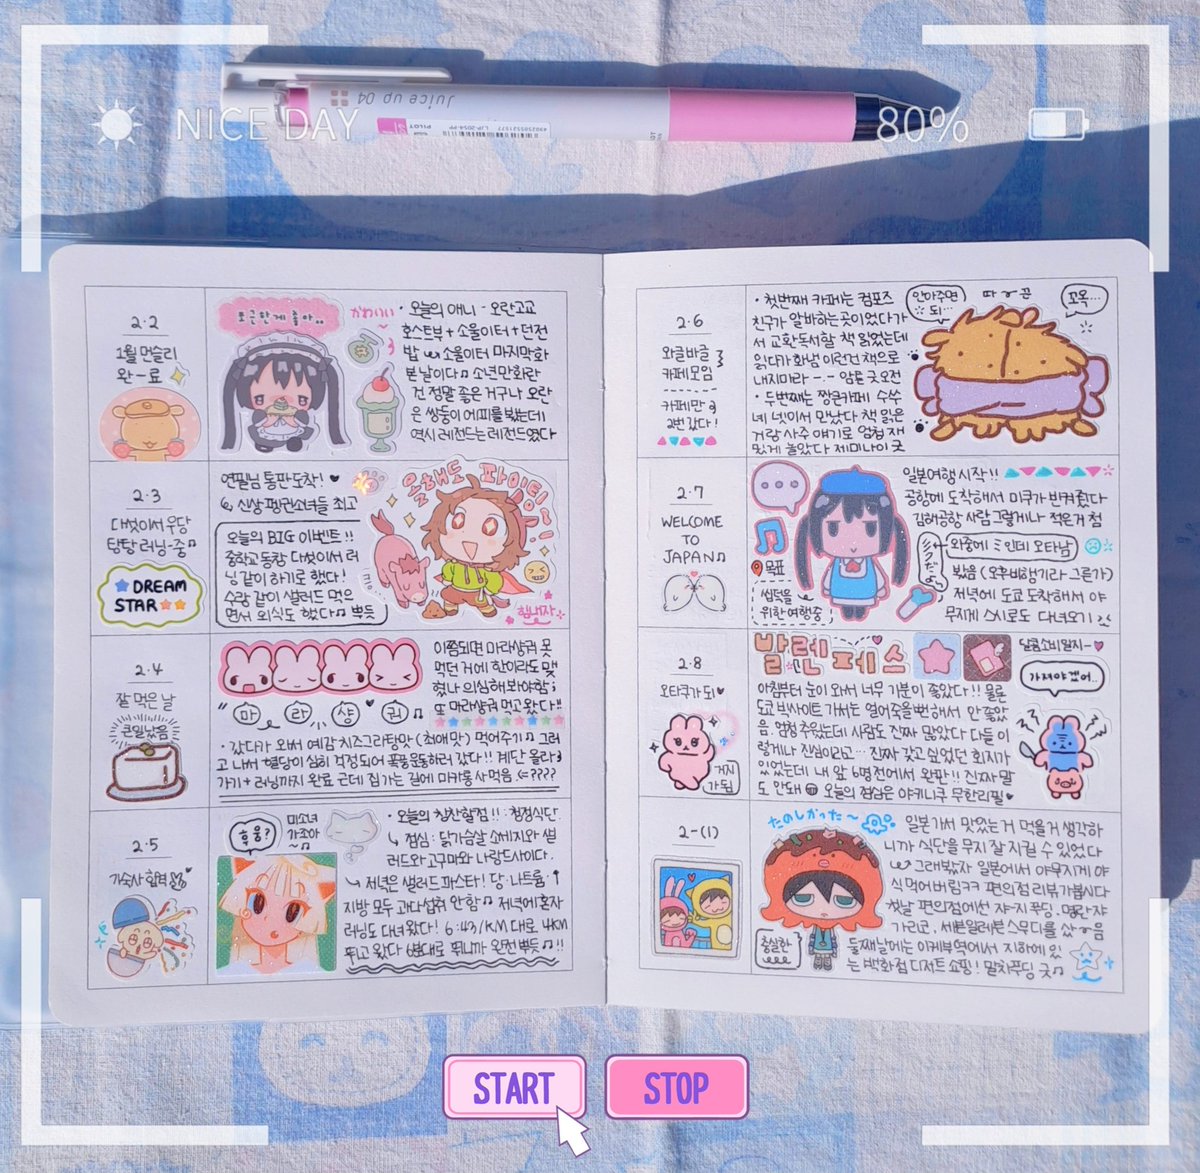 NICE DAY
80%
Juice up 04
PILOT
2.2
1월 먼슬리
완-료
포근한게 좋아..
かわいい
~
• 오늘의 애니 - 오란고교
호스트부 + 소울이터 + 던전
밥 소울이터 마지막화
본날이다♫ 소년만화란
건 정말 좋은 거구나 오란
은 쌍둥이 에피를 봤는데
역시 레전드는 레전드였다
2.3
다섯이서 우당
탕탕 러닝-중♫
DREAM
STAR
연필님 통판도착! ♥
↳ 신상 펭귄소녀들 최고
오늘의 BIG 이벤트!!
중학교 동창 다섯이서 러
닝 같이 하기로 했다!
수랑 같이 샐러드 먹으
면서 외식도 했다♫ 뿌듯
올해도 파이팅!
힘내자
2.4
잘 먹은 날
큰일났음
마 라 샹 궈 ♫
이쯤되면 마라샹궈 못
먹던 거에 한이라도 맺
혔나 의심해봐야함;
또 마라샹궈 먹고 왔다!!
• 갔다가 오버 예감 치즈그라탕맛 (최애맛) 먹어주기♫ 그러
고 나서 혈당이 심히 걱정되어 폭풍운동하러 갔다!! 계단 올라
가기 + 러닝까지 완료 근데 집 가는 길에 마카롱 사먹음 ⇐????
2.5
가속사 합격
후웅?
미소녀
가 좋아
~♫
• 오늘의 칭찬할점!! : 청정식단.
↳ 점심: 닭가슴살 소세지와 샐
러드와 고구마와 나랑드사이다.
↳ 저녁은 샐러드 파스타! 당·나트륨·
지방 모두 과다섭취 안함♫ 저녁에 혼자
러닝도 다녀왔다! 6:43/KM 대로 4KM
뛰고 왔다 6분대로 뛰니까 완전 뿌듯♫!!
2.6
와글바글
카페모임
카페만
2번 갔다!
• 첫번째 카페는 컴포즈
친구가 알바하는 곳이었다가
서 교환독서할 책 읽었는데
읽다가 화냄 이런건 책으로
내지마라 -.- 암튼 굿 오전
• 두번째는 짱큰카페 수쑤
녜 넷이서 만났다 책 읽은
거랑 사주 얘기로 엄청 재
밌게 놀았다 제미나이 굿
안아주면
되…
따~끈
꼬옥…
2.7
WELCOME
TO
JAPAN♫
목표
썸덕을
위한여행중
일본여행 시작!!
공항에 도착해서 미쿠가 반겨줬다
김해공항 사람 그렇게나 적은거 첨
와중에 ミ인데 오타남
봤음 (오후비행기라 그른가)
저녁에 도쿄 도착해서 야
무지게 스시로도 다녀오기
2.8
오타쿠가 되♥
거지
가 됨
발렌페스
달콤소비일지~♥
가져야겠어..
아침부터 눈이 와서 너무 기분이 좋았다!! 물론
도쿄 빅사이트 가서는 얼어죽을뻔해서 안좋았
음. 엄청 추웠는데 사람도 진짜 많았다 다들 이
렇게나 진심이라고... 진짜 갖고 싶었던 회지가
있었는데 내 앞 6명전에서 완판!! 진짜 말
도 안돼 오늘의 점심은 야키니쿠 무한리필♥
2-(1)
たのしかった~
충실한
일본가서 맛있는거 먹을거 생각하
니까 식단을 무지 잘 지킬 수 있었다
그래놨자 일본에서 야무지게 야
식 먹어버림ㅋㅋ 편의점 리뷰가봅시다
첫날 편의점에선 쟈-지 푸딩, 명란쟈
가리코, 세븐일레븐스무디를 샀~음
둘째날에는 이케부역에서 지하에 있
는 백화점 디저트 쇼핑! 말차푸딩 굿♫
START
STOP